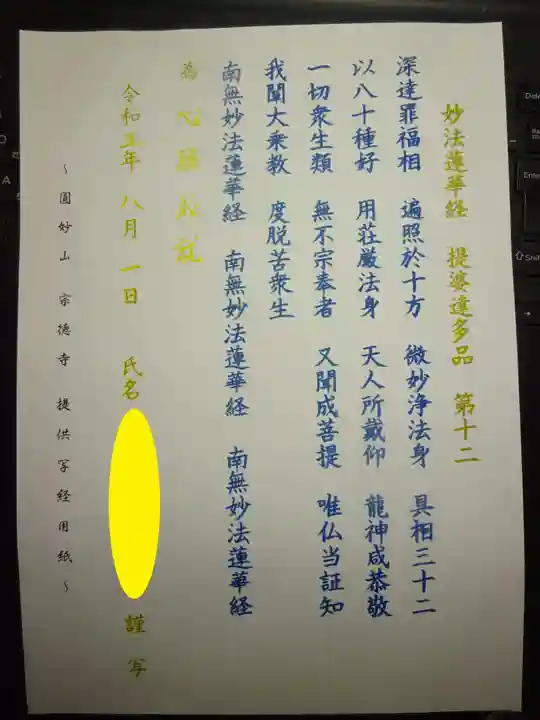 妙法蓮華経 提婆達多品 第十二
深達罪福相 遍照於十方 微妙浄法身 具相三十二
以八十種好 用荘厳法身 天人所戴仰 龍神咸恭敬
一切衆生類 無不宗奉者 又聞成菩提 唯仏当証知
我闡大乗教 度脱苦衆生
南無妙法蓮華経 南無妙法蓮華経 南無妙法蓮華経
為 心
令和五年 八月 一日 氏名 謹写
～圓妙山 宗徳寺 提供写経用紙～